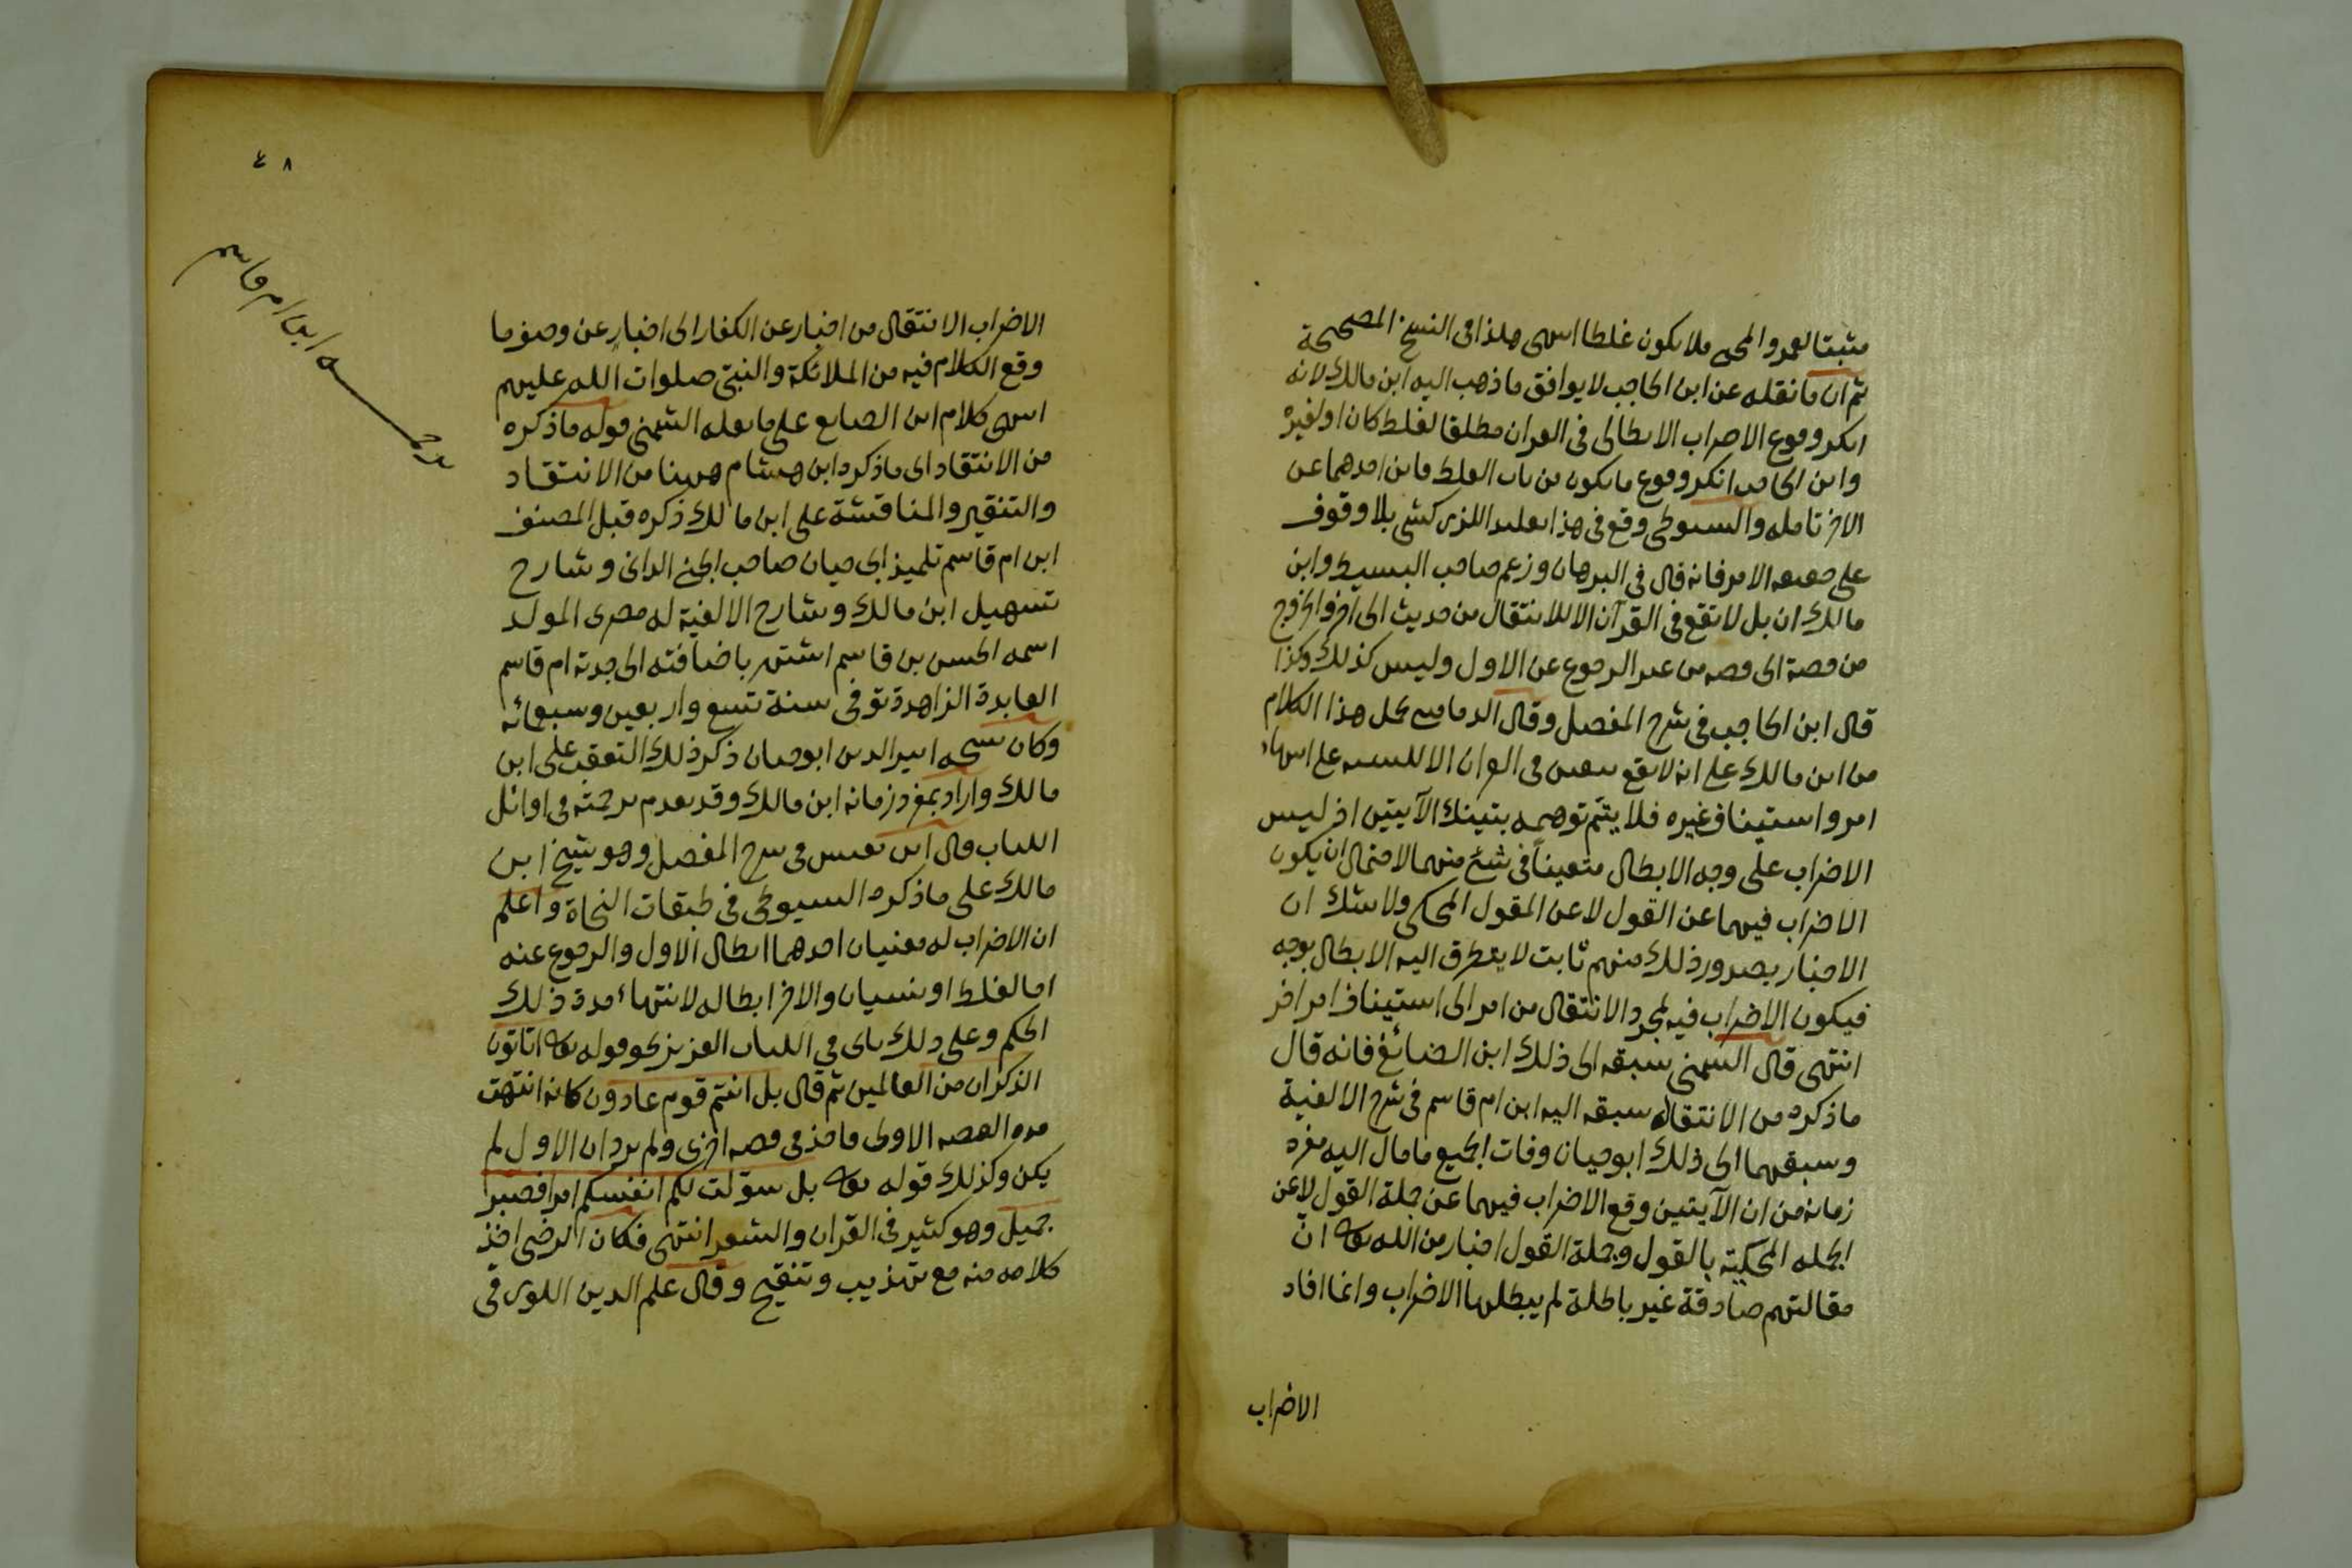 مثبتا لعمرو المجى فلا يكون غلطا انتهى هكذا فى النسخ المصححة
ثم ان ما نقله عن ابن الحاجب لا يوافق ما ذهب اليه ابن مالك لانه
انكر وقوع الاضراب الابطالى فى القران مطلقا لغلط كان او لغيره
وابن الحاجب انكر وقوع ما يكون من باب الغلط فاين احدهما عن
الاخر تامله والسيوطى وقع فى هذا بلا وقوف
على حقيقة الامر فانه قال فى البرهان وزعم صاحب البسيط وابن
مالك ان بل لا تقع فى القرآن الا للانتقال من حديث الى آخر والخروج
من قصة الى قصة من غير الرجوع عن الاول وليس كذلك وكذا
قال ابن الحاجب فى شرح المفصل وقال الدمامينى محل هذا الكلام
من ابن مالك على انه لا يقع فى القران الا للتنبيه على انتهاء
امر واستيناف غيره فلا يتم توهيمه بتينك الآيتين اذ ليس
الاضراب على وجه الابطال متعيناً فى شئ منهما لاحتمال ان يكون
الاضراب فيهما عن القول لا عن المقول المحكى ولا شك ان
الاخبار بصدور ذلك منهم ثابت لا يتطرق اليه الابطال بوجه
فيكون الاضراب فيه لمجرد الانتقال من امر الى استيناف امر اخر
انتهى قال الشمنى سبقه الى ذلك ابن الصائغ فانه قال
ما ذكره من الانتقاد سبقه اليه ابن ام قاسم فى شرح الالفية
وسبقهما الى ذلك ابو حيان وفات الجميع ما مال اليه مفرد
زمانه من ان الآيتين وقع الاضراب فيهما عن جملة القول لا عن
الجملة المحكية بالقول وجملة القول اخبار من الله تعالى ان
مقالتهم صادقة غير باطلة لم يبطلها الاضراب وانما افاد
الاضراب
٤٨
ترجمة ابن ام قاسم
الاضراب الانتقال من اخبار عن الكفار الى اخبار عن وصف ما
وقع الكلام فيه من الملائكة والنبى صلوات الله عليهم
انتهى كلام ابن الصايغ على ما نقله الشمنى قوله ما ذكره
من الانتقاد اى ما ذكره ابن هشام ههنا من الانتقاد
والتنقير والمناقشة على ابن مالك ذكره قبل المصنف
ابن ام قاسم تلميذ ابى حيان صاحب الجنى الدانى وشارح
تسهيل ابن مالك وشارح الالفية له مصرى المولد
اسمه الحسن بن قاسم اشتهر باضافته الى جدته ام قاسم
العابدة الزاهدة توفى سنة تسع واربعين وسبعمائه
وكان شيخه اثير الدين ابو حيان ذكر ذلك التعقب على ابن
مالك واراد بمفرد زمانه ابن مالك وقد تقدم ترجمته فى اوائل
اللباب قال ابن يعيش فى شرح المفصل وهو شيخ ابن
مالك على ما ذكره السيوطى فى طبقات النحاة واعلم
ان الاضراب له معنيان احدهما ابطال الاول والرجوع عنه
اما لغلط او نسيان والاخر ابطاله لانتهاء مدة ذلك
الحكم وعلى ذلك ياتى فى الكتاب العزيز نحو قوله تعالى اتاتون
الذكران من العالمين ثم قال بل انتم قوم عادون كانه انتهت
هذه القصه الاولى فاخذ فى قصه اخرى ولم يرد ان الاول لم
يكن وكذلك قوله تعالى بل سولت لكم انفسكم امرا فصبر
جميل وهو كثير فى القران والشعر انتهى فكان الرضى اخذ
كلامه منه مع تهذيب وتنقيح وقال علم الدين اللورى فى